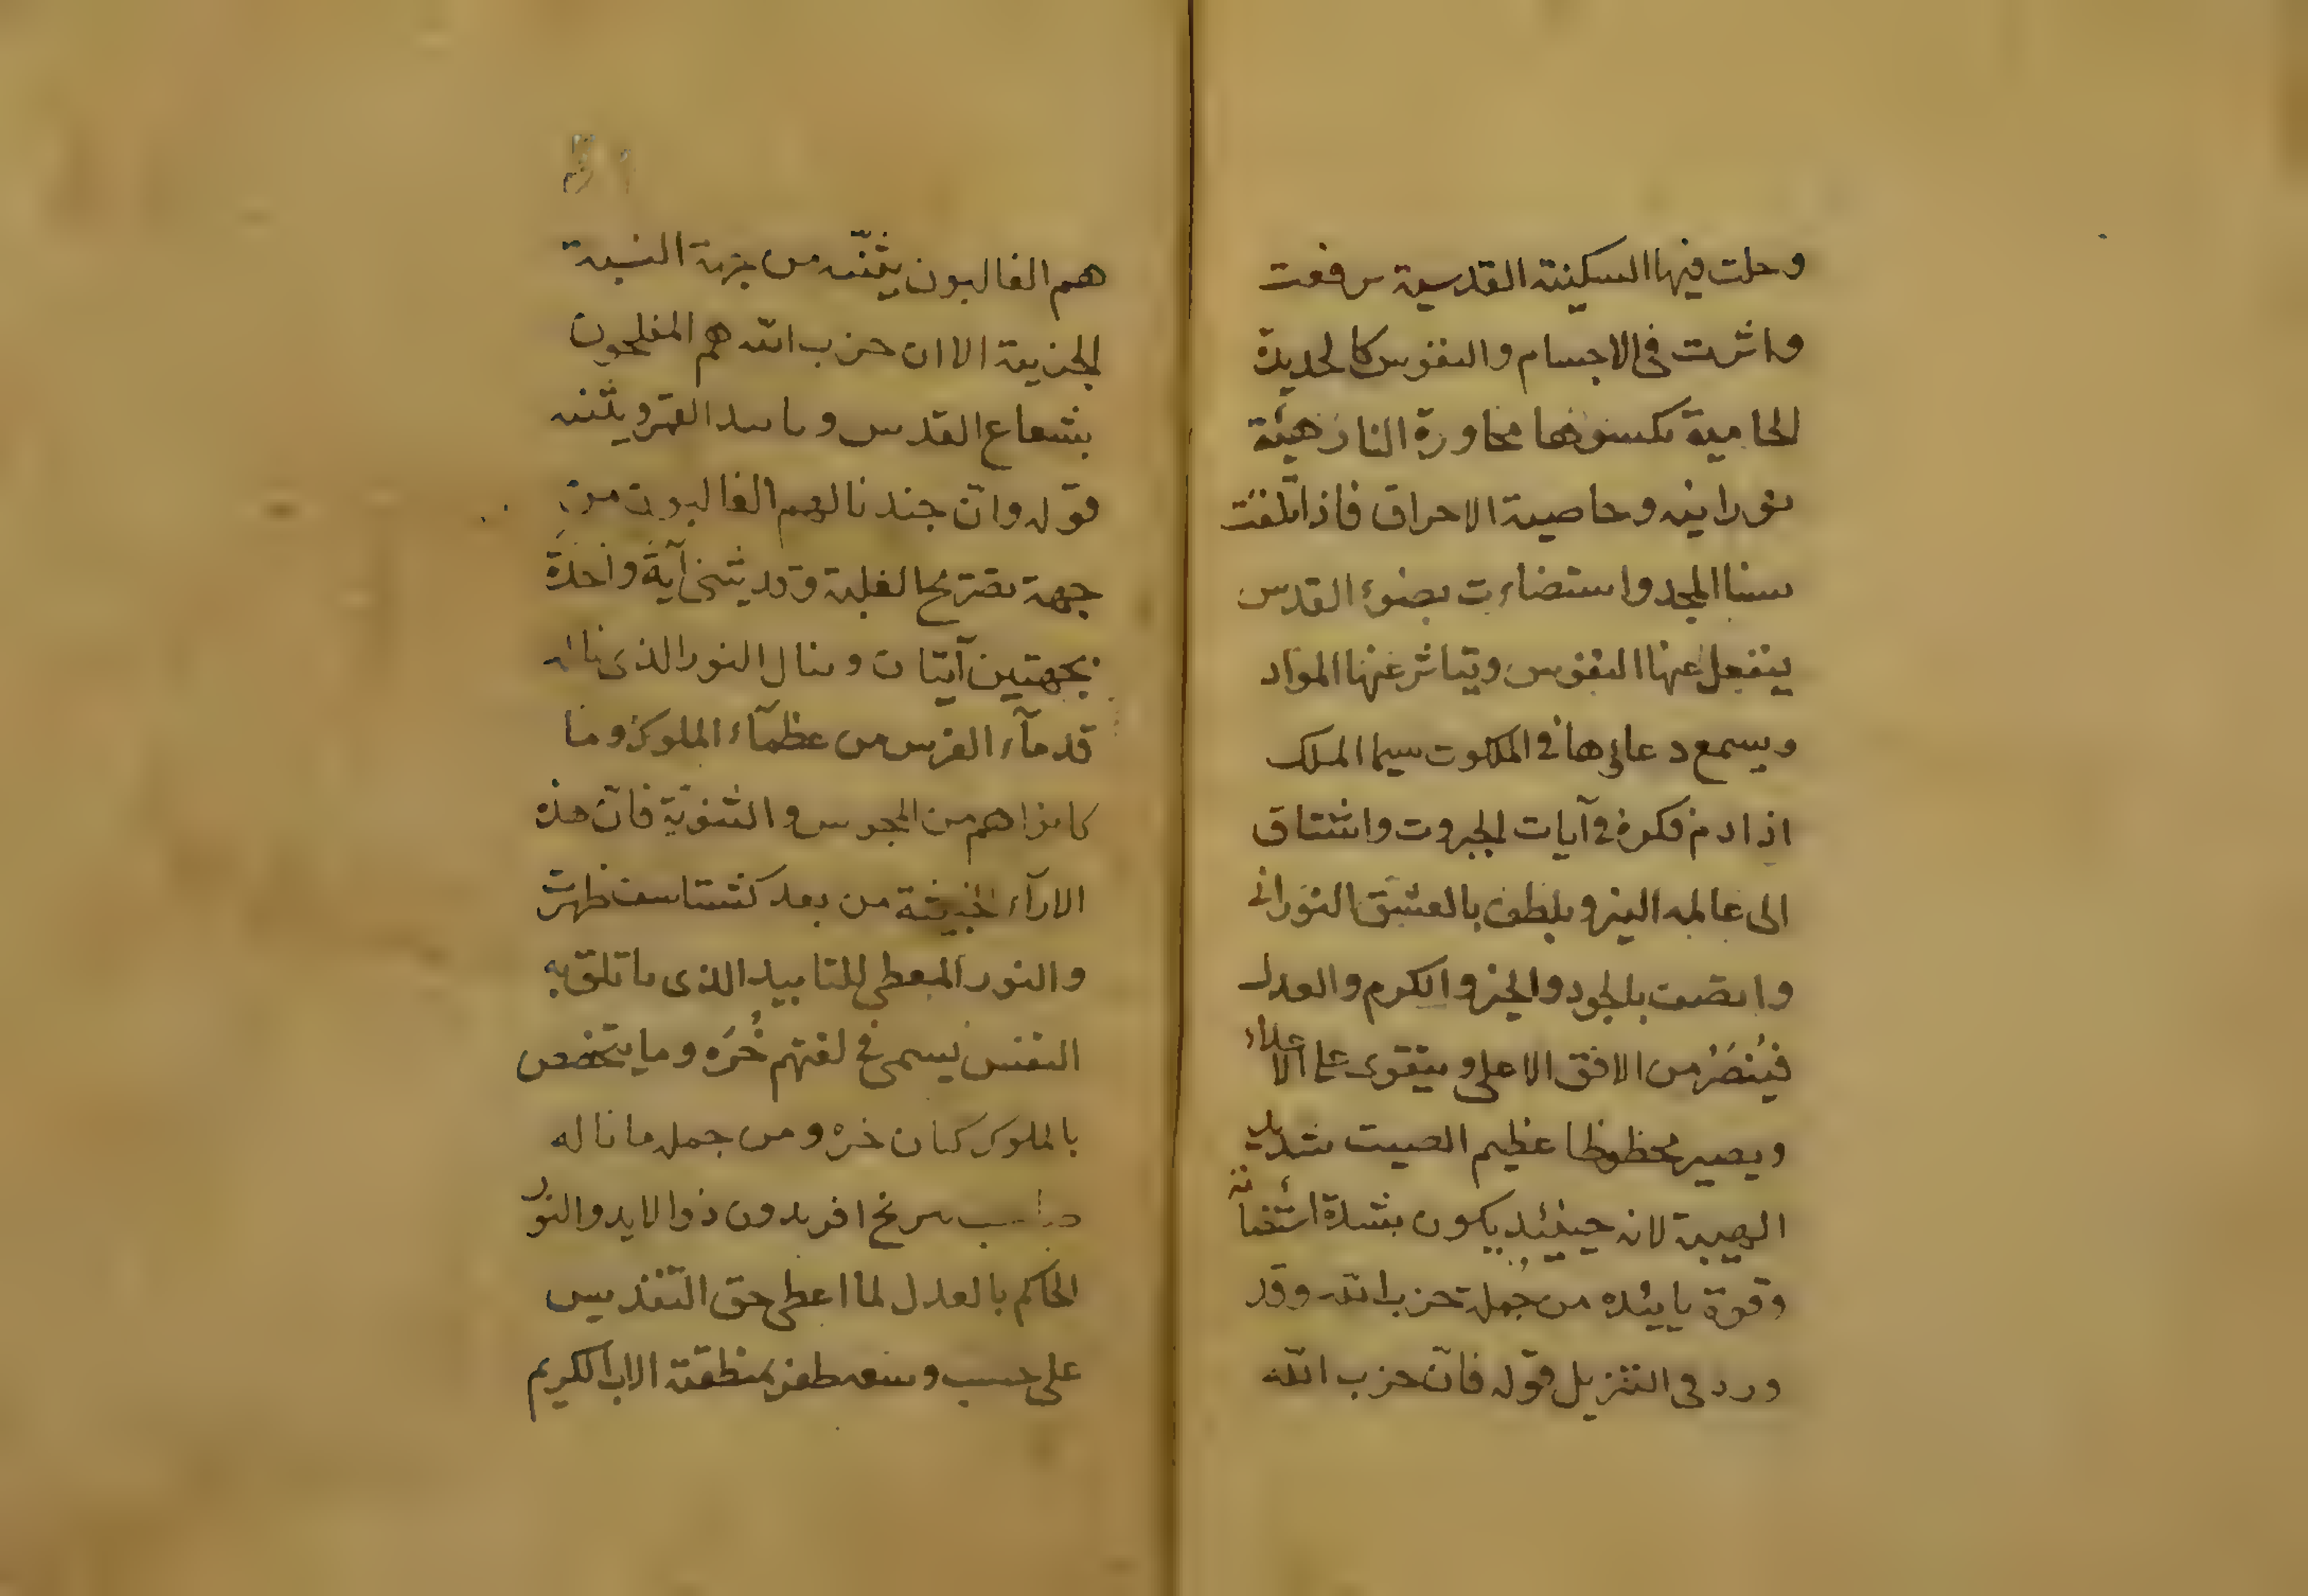 وحلت فيها السكينة القدسية رفعت
واثرت في الاجسام والنفوس كالحديدة
الحامية تكسوها مجاورة النار هيئة
نورانيه وخاصية الاحراق فاذا تلقت
سنا المجد واستضاءت بضوء القدس
ينفعل عنها النفوس ويتاثر عنها المواد
ويسمع دعاؤها في الملكوت سيما الملك
اذا ادم فكره في آيات الجبروت واشتاق
الى عالمه النير ويلطف بالعشق النوراني
واتصف بالجود والخير والكرم والعدل
فيُنصَرُ من الافق الاعلى ويتقوى على الاعلاء
ويصير محظوظا عظيم الصيت شديد
الهيبة لانه حينئذ يكون بشدة اشخانه
وقوة يايئده من جُملة حزب الله وقد
ورد في التنزيل قوله فانّ حزب الله
هم الغالبون يثنّه من جهة النسبة
الحزبية الا ان حزب الله هم المفلحون
بشعاع القدس وتاييد القهر ويثنه
قوله وانّ جندنا لهم الغالبون من
جهة تصريح الغلبة وقد يثنى آية واحدة
بجهتين آيتان وينال النور الذي ناله
قدمآء الفرس من عظمآء الملوك وما
كانوا هم من المجوس والثنوية فانّ هذه
الارآء الخبيثة من بعد كشتاسف ظهرت
والنور المعطي للتاييد الذي ياتلق به
النفس يسمى في لغتهم خُرّه وما يتخصص
بالملوك كيان خره ومن جمله ما ناله
صاحب سرنح افريدون ذو الايد والنور
الحاكم بالعدل لما اعطى حق التقديس
على حسب وسعه ظفر بمنطقة الاب الكريم